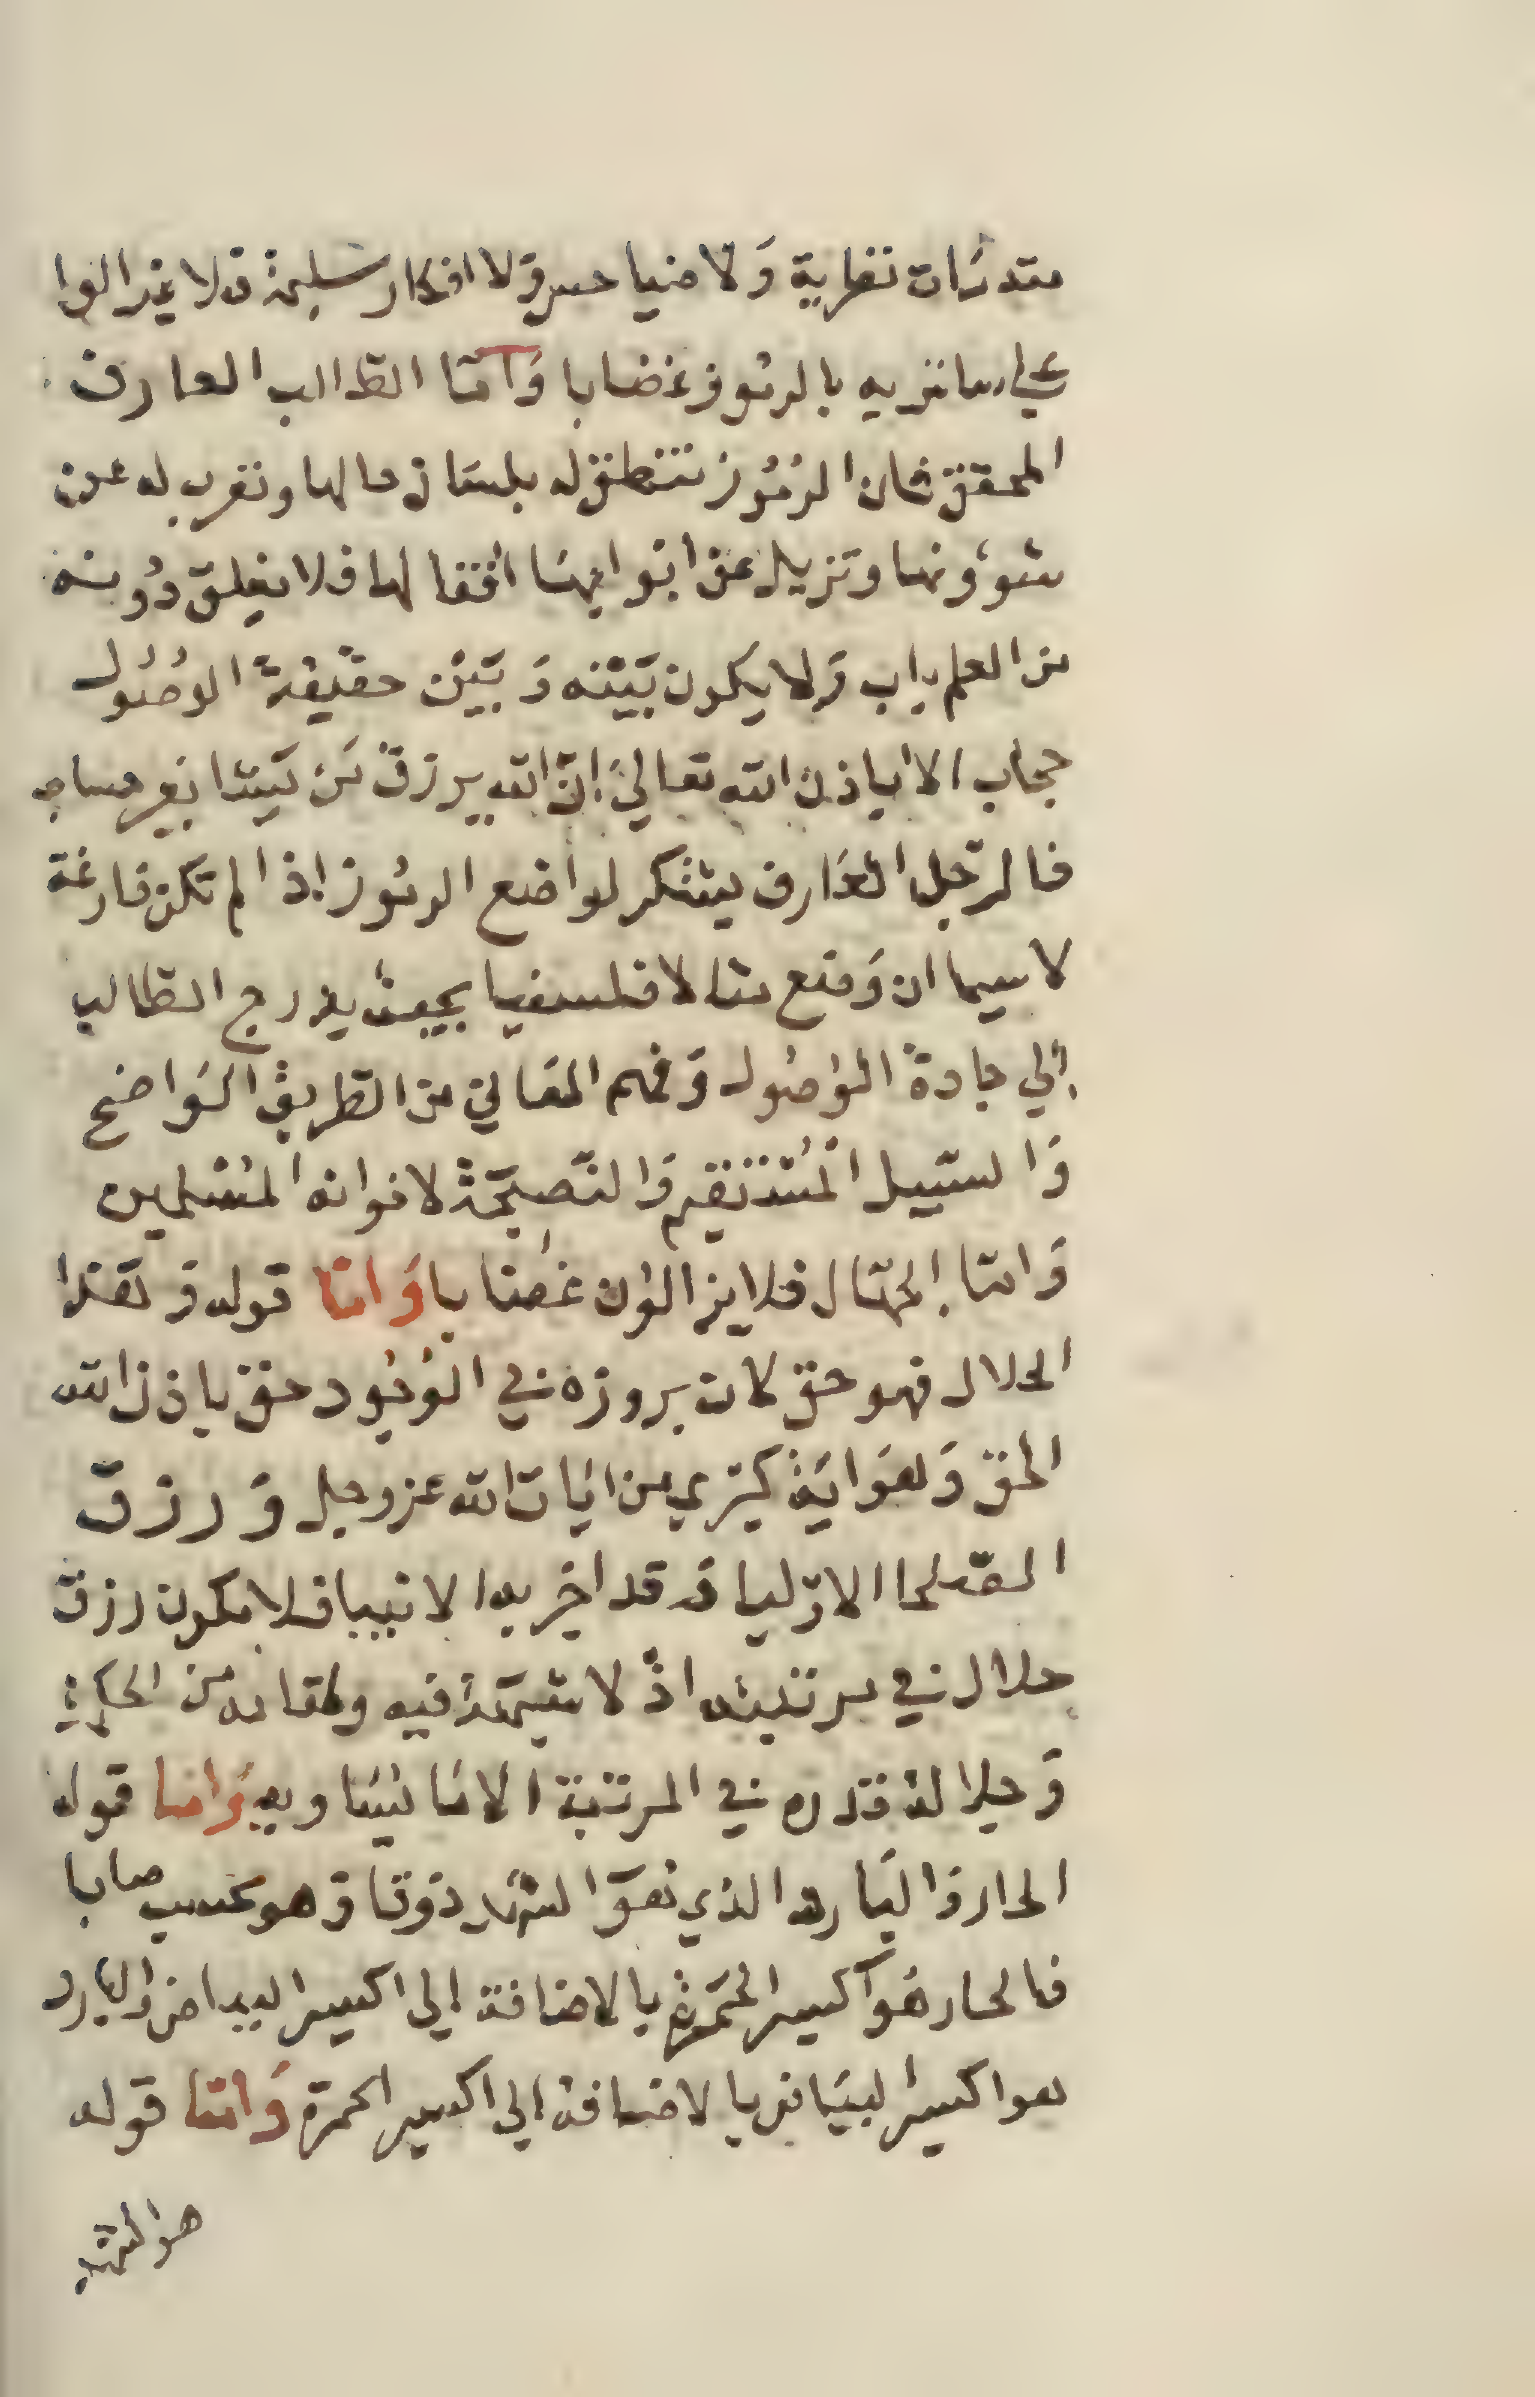 مقدمات نظرية ولا ضيا حس ولا افكار سليمة فلا يزالوا
على اربابه بالرموز غضابا وَامّا الطالب العارف
المحقق فان الرمُوز تنطق له بلسَان حالها وتعرب له عن
شؤونها وتزيل عن ابوابهَا اقفالها فلا يغلق دُونه
من العلم باب وَلا يكون بَيْنه وَبَيْن حقيقة الوصُول
حجاب الا باذن الله تعالى انّ الله يرزق مَن يَشا بغير حساب
فالرّجل العَارف يتفكر لمواضع الرموز اذا لم تكن فارغة
لا سيما ان وَقع مثالا فلسفيا بحيث يدرج الطالب
إلى جادة الوُصُول وَفهم المعَاني من الطريق الوَاضح
وَالسّبيل المُسْتقيم وَالنّصيحَة لاخوانه المُسْلمين
وَامّا الجهّال فلا يزالون غضابا وَامّا قوله وَهذا
الحلال فهو حق كان بروزه في الوُجُود حق باذن الله
الحق وَهوَ ايَة كبرى من ايَات الله عز وجل وَرزق
الصّلحا الاوّليا وَقد اخر به الانبيا فلا يكون رزق
حلال في مرتبته اذ لا شبهَة فيه ولقائه من الحكمة
وَجلالة قدره في المرتبة الا مَا نبيَا وبه وَامّا قوله
الحار وَالبَارد الذي هوَ الشهد ذوقا وَهو تحسب صابا
فالحار هُوَ اكسير الحمرة بالاضافة إلى اكسير البياض وَالبارد
هو اكسير البيَاض بالاضافة إلى اكسير الحمرة وَامّا قوله
هو الشهد